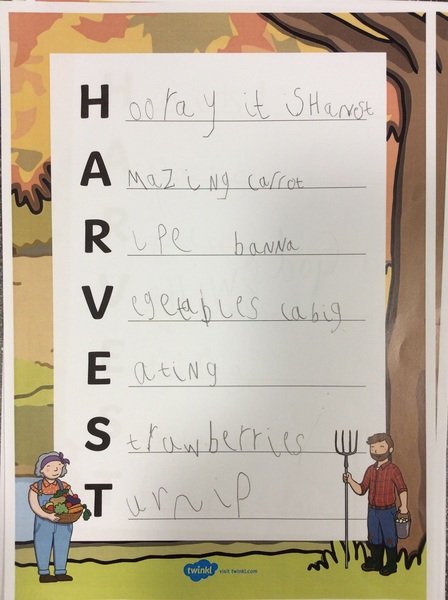 Hooray it isHarvest
Amazing carrot
Ripe banna
Vegetables cabig
Eating
Strawberries
Turnip
twinkl visit twinkl.com